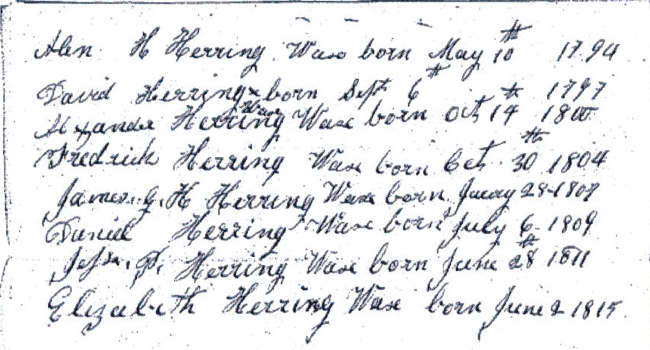 Alen H Herring Was born May 10th 1794
David Herring Was born Sept 6th 1797
Alxander Herring Was born Oct 14th 1800
Fredrick Herring Was born Oct 30th 1804
James. G. H Herring Was born Juery 28-1807
Daniel Herring Was born July 6-1809
P. Herring Was born June 28th 1811
Elizabeth Herring Was born June 2 1815.